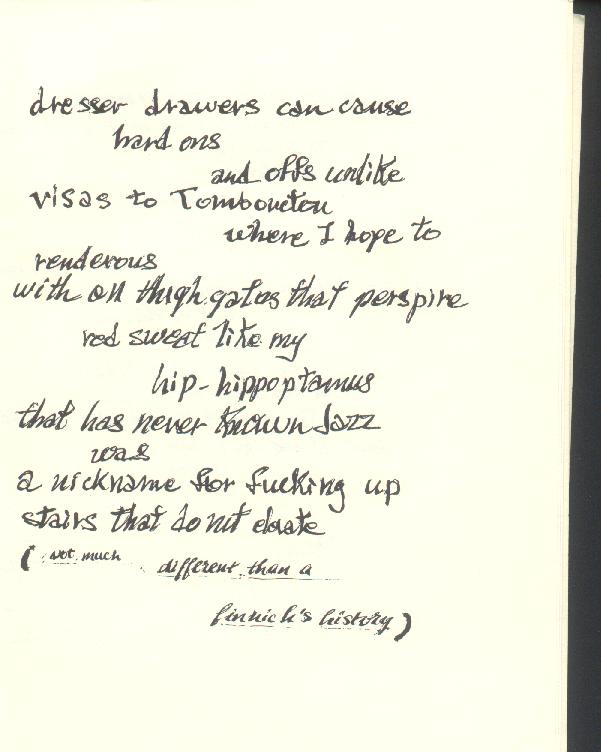 dresser drawers can cause
hard ons
and offs unlike
visas to Tombouctou
where I hope to
renderous
with on thigh gatos that perspire
red sweat like my
hip-hippoptamus
that has never known Jazz
was
a nickname for fucking up
stairs that do nt
(not much
different than a
finnich's history)